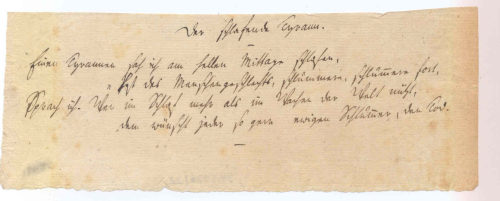 Der schlafende Tyrann.
Einen Tyrannen sah ich am hellen Mittage schlafen,
des Menschengeschlechts, schlummere, schlummere fort,
Sprach ich. Wer im Schlaf mehr als im Wachen der Welt nützt,
dem wünscht jeder so gern ewigen Schlummer, den Tod.